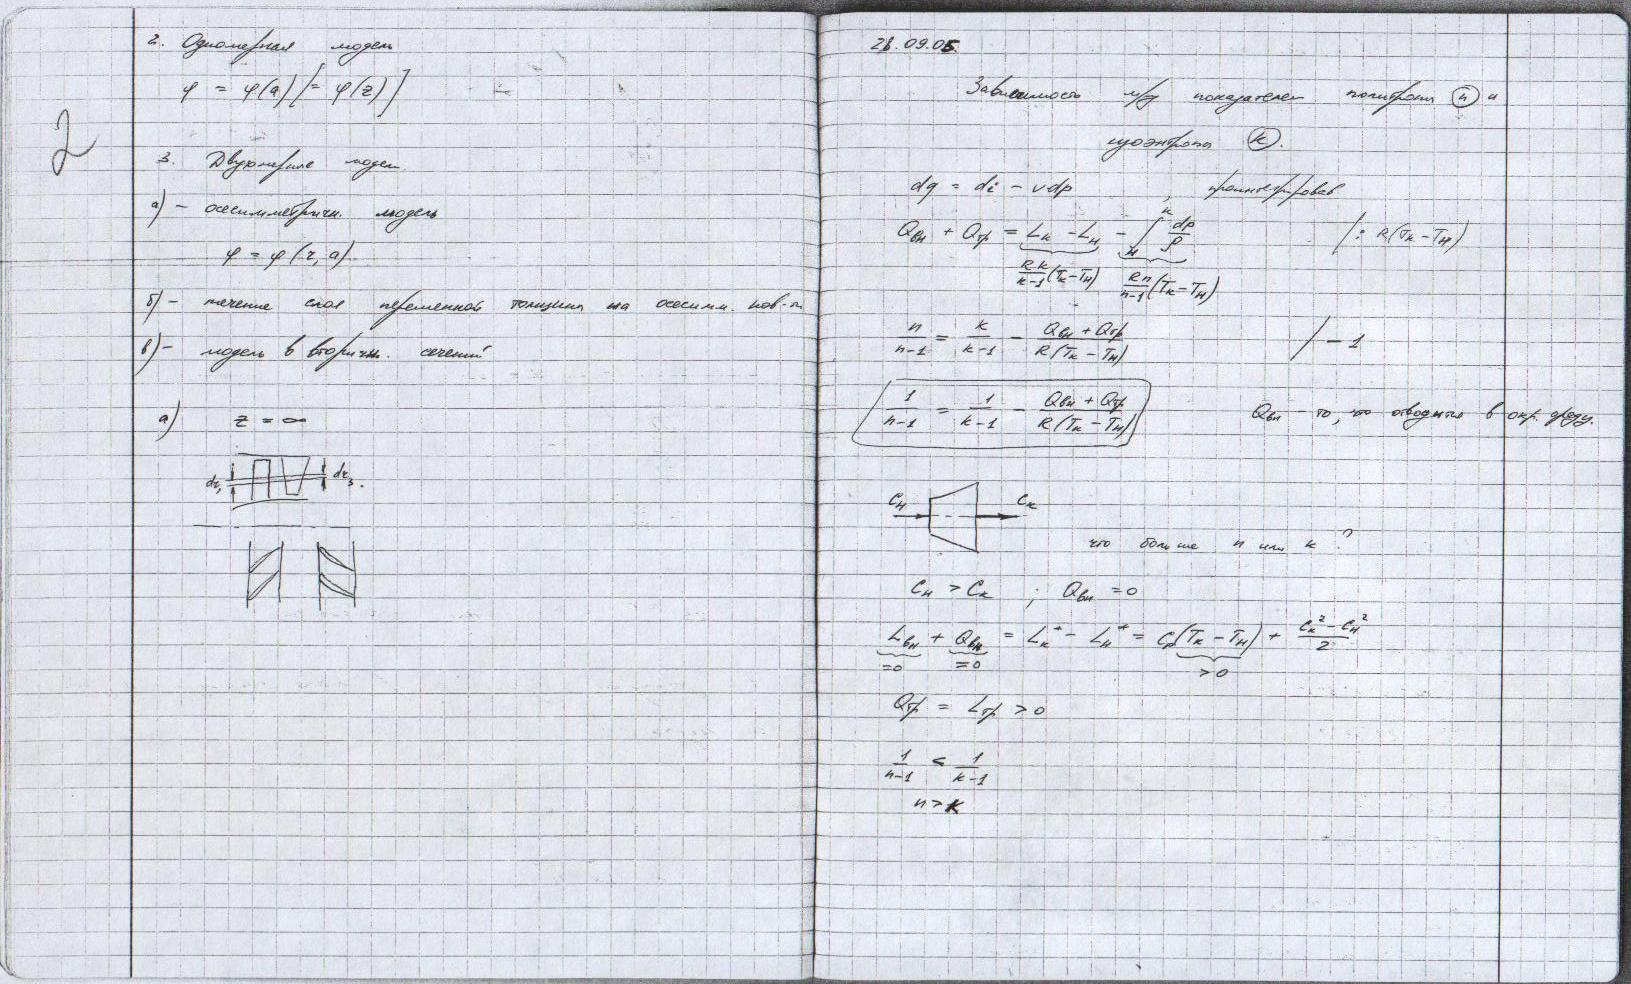 2. Одномерная модель
φ = φ(a) [= φ(z)]
2
3. Двухмерные модели
а) – осесимметричн. модель
φ = φ(r, a).
б) – течение слоя переменной толщины на осесимм. пов-ти
в) – модель в вторичн. течений
а) z = ∞
dr₁ dr₃.
28.09.05.
Зависимость м/у показателем политропы n и
изоэнтропы k.
dq = di − vdp , проинтегрировав
Qвн + Qтр = Lк − Lн − ∫ₙᵏ dp/ρ /: R(Tк−Tн)
Rk/(k−1) (Tк−Tн) Rn/(n−1) (Tк−Tн)
n/(n−1) = k/(k−1) − (Qвн + Qтр)/(R(Tк − Tн)) / −1
1/(n−1) = 1/(k−1) − (Qвн + Qтр)/(R(Tк − Tн)) Qвн – то, что отводится в окр. среду.
Cн Cк
что больше n или k ?
Cн > Cк ; Qвн = 0
Lвн + Qвн = Lк* − Lн* = Cp(Tк − Tн) + (Cк² − Cн²)/2
=0 =0 >0
Qтр = Lтр > 0
1/(n−1) < 1/(k−1)
n > k